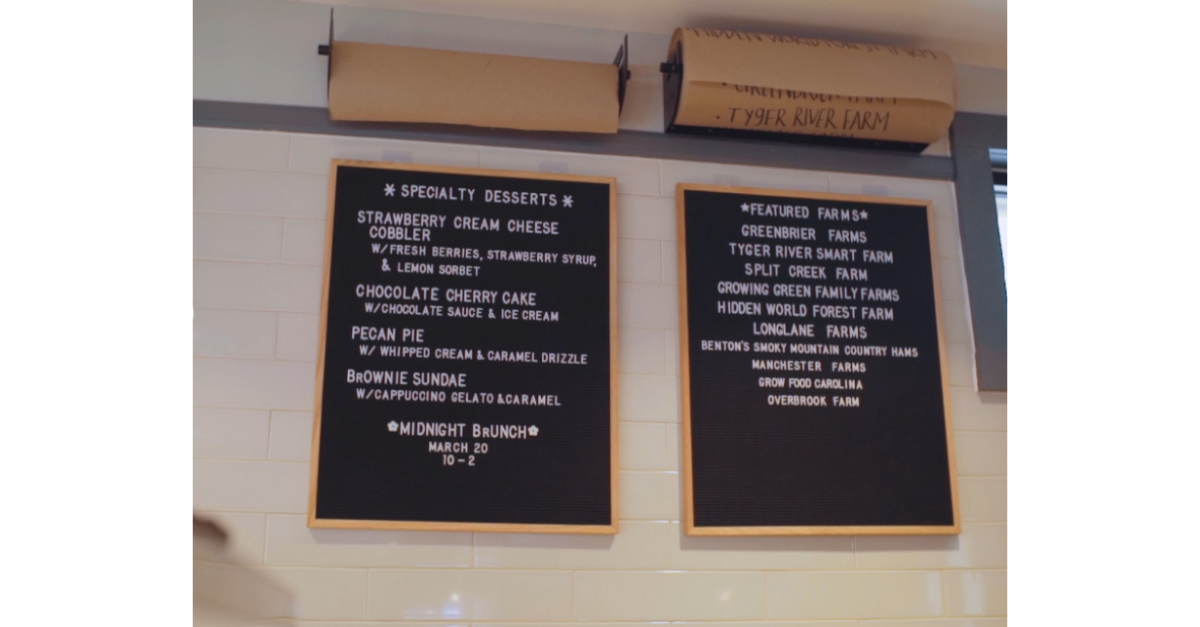 TYGER RIVER FARM
* SPECIALTY DESSERTS *
STRAWBERRY CREAM CHEESE
COBBLER
W/FRESH BERRIES, STRAWBERRY SYRUP,
& LEMON SORBET
CHOCOLATE CHERRY CAKE
W/CHOCOLATE SAUCE & ICE CREAM
PECAN PIE
W/ WHIPPED CREAM & CARAMEL DRIZZLE
BrOWNIE SUNDAE
W/CAPPUCCINO GELATO & CARAMEL
MIDNIGHT BrUNCH
MARCH 20
10-2
★FEATURED FARMS★
GREENBRIER FARMS
TYGER RIVER SMART FARM
SPLIT CREEK FARM
GROWING GREEN FAMILY FARMS
HIDDEN WORLD FOREST FARM
LONGLANE FARMS
BENTON'S SMOKY MOUNTAIN COUNTRY HAMS
MANCHESTER FARMS
GROW FOOD CAROLINA
OVERBROOK FARM